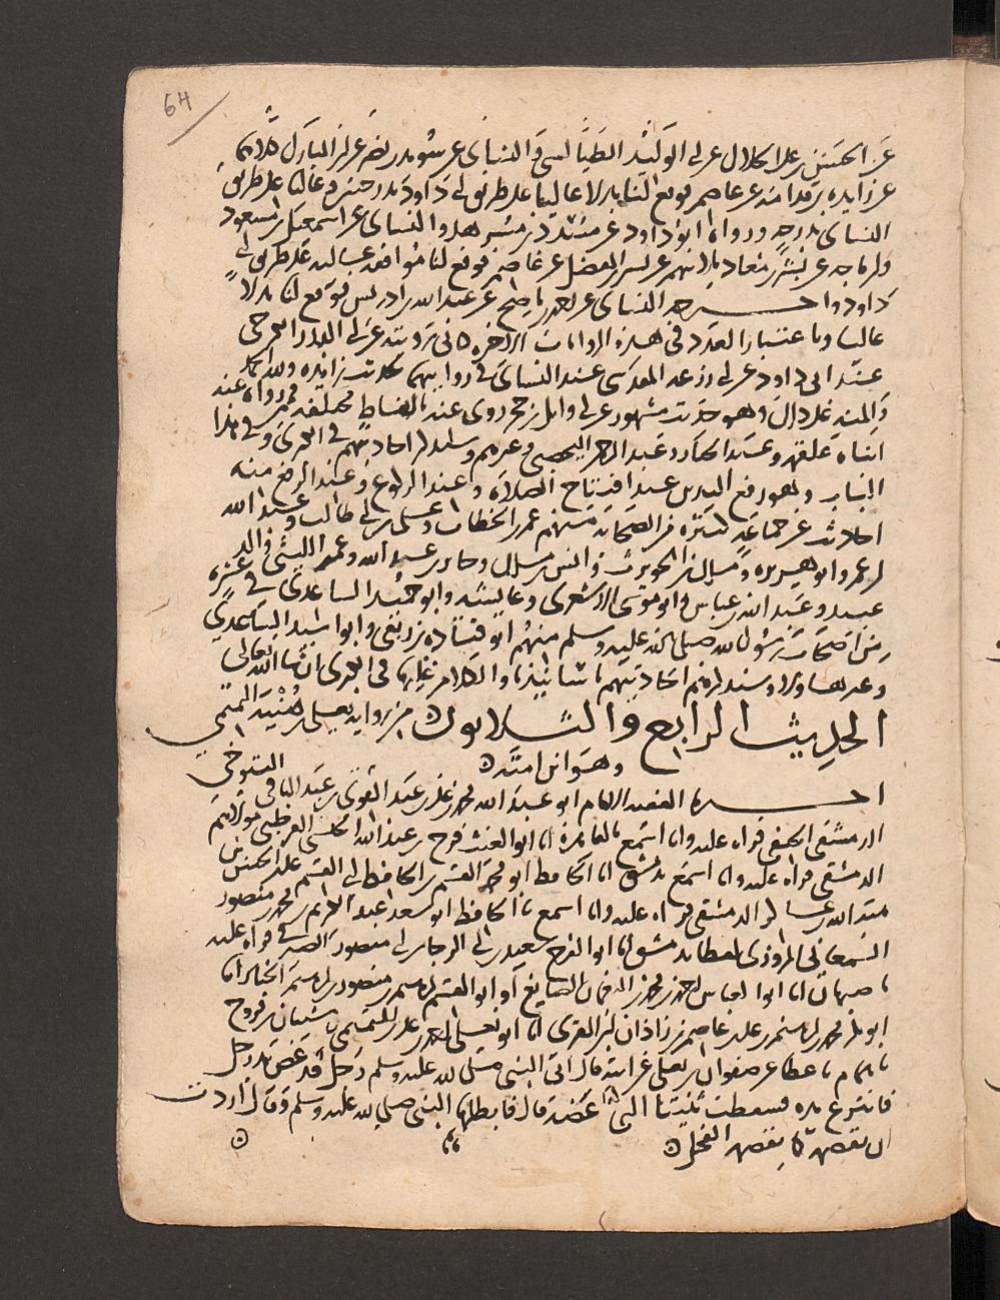 64
عن الحسن بن علي الخلال عن ابي الوليد الطيالسي والنسائي عن سويد بن نصر عن ابن المبارك كلاهما
عن زايدة بن قدامة عن عاصم فوقع لنا بدلا عاليا على طريق ابي داود بدرجتين وعاليا على طريق
النسائي بدرجة ورواه ابو داود عن مسدد عن بشر هذا والنسائي عن اسمعيل بن مسعود
وابن ماجه عن بشر بن معاذ ثلاثتهم عن بشر بن المفضل عن عاصم فوقع لنا موافقة عالية على طريق ابي
داود واخرجه النسائي عن احمد بن ناصح عن عبد الله بن ادريس فوقع لنا بدلا
عاليا وباعتبار العدد في هذه الروايات الاخرة كاني رويته عن ابي البدر الكرخي
عند ابي داود وعن ابي زرعة المقدسي عند النسائي في روايتهما لحديث زايدة ولله الحمد
والمنة على ذلك وهو حديث مشهور عن ابي وائل بن حجر روي عنه بالفاظ مختلفة فممن رواه عنه
ابناه علقمة وعبد الجبار وعبد الرحمن اليحصبي وغيرهم وسند احاديثهم في اخرى وفي هذا
الباب وهو رفع اليدين عند افتتاح الصلاة وعند الركوع وعند الرفع منه
احاديث عن جماعة كثيرة من الصحابة منهم عمر بن الخطاب وعلي بن ابي طالب وعبد الله
بن عمر وابو هريرة ومالك بن الحويرث وانس بن مالك وجابر بن عبد الله وعمير الليثي والد
عبيد وعبد الله بن عباس وابو موسى الاشعري وعايشة وابو حميد الساعدي في عشرة
من اصحاب رسول الله صلى الله عليه وسلم منهم ابو قتادة بن ربعي وابو اسيد الساعدي
وغيرهما وسنذكر احاديثهم باسانيدنا والكلام عليها في اخرى ان شاء الله تعالى
الحديث الرابع والثلاثون من رواية يعلى بن منية التميمي
وهو ابن امية
اخبرنا الفقيه الامام ابو عبد الله محمد بن علي بن عبد القوي بن عبد الباقي التنوخي
الدمشقي الحنفي قراه عليه وانا اسمع بالقاهرة انا ابو الغيث فرج بن عبد الله الحبشي القرطبي مولاهم
الدمشقي قراه عليه وانا اسمع بدمشق انا الحافظ ابو محمد القسم بن الحافظ ابي القسم علي بن الحسن بن
هبة الله بن عساكر الدمشقي قراه عليه وانا اسمع نا الحافظ ابو سعد عبد الكريم بن محمد بن منصور
السمعاني المروزي لفظا بدمشق انا ابو الفرج سعيد بن ابي الرجاء بن ابي منصور الصيرفي قراه عليه
باصبهان انا ابو العباس احمد بن محمد بن النعمان الصايغ او ابو القسم ابراهيم بن منصور بن ابراهيم الخباز انا
ابو بكر محمد بن ابراهيم بن علي بن عاصم بن زاذان ابن المقرئ انا ابو يعلى احمد بن علي بن المثنى نا شيبان بن فروخ
نا همام نا عطا عن صفوان بن يعلى عن ابيه قال اتى النبي صلى الله عليه وسلم رجل قد عض يد رجل
فانتزع يده فسقطت ثنيتا الذي عضه قال فابطلها النبي صلى الله عليه وسلم وقال اردت
ان تقضمه كما يقضم الفحل